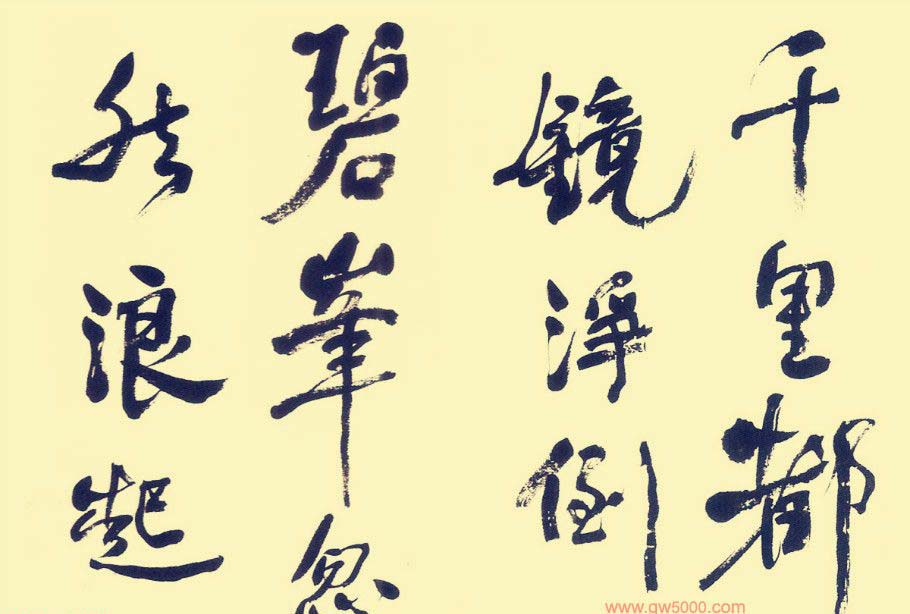 千里都
鏡淨倒
碧峯忽
然浪起
www.gw5000.com